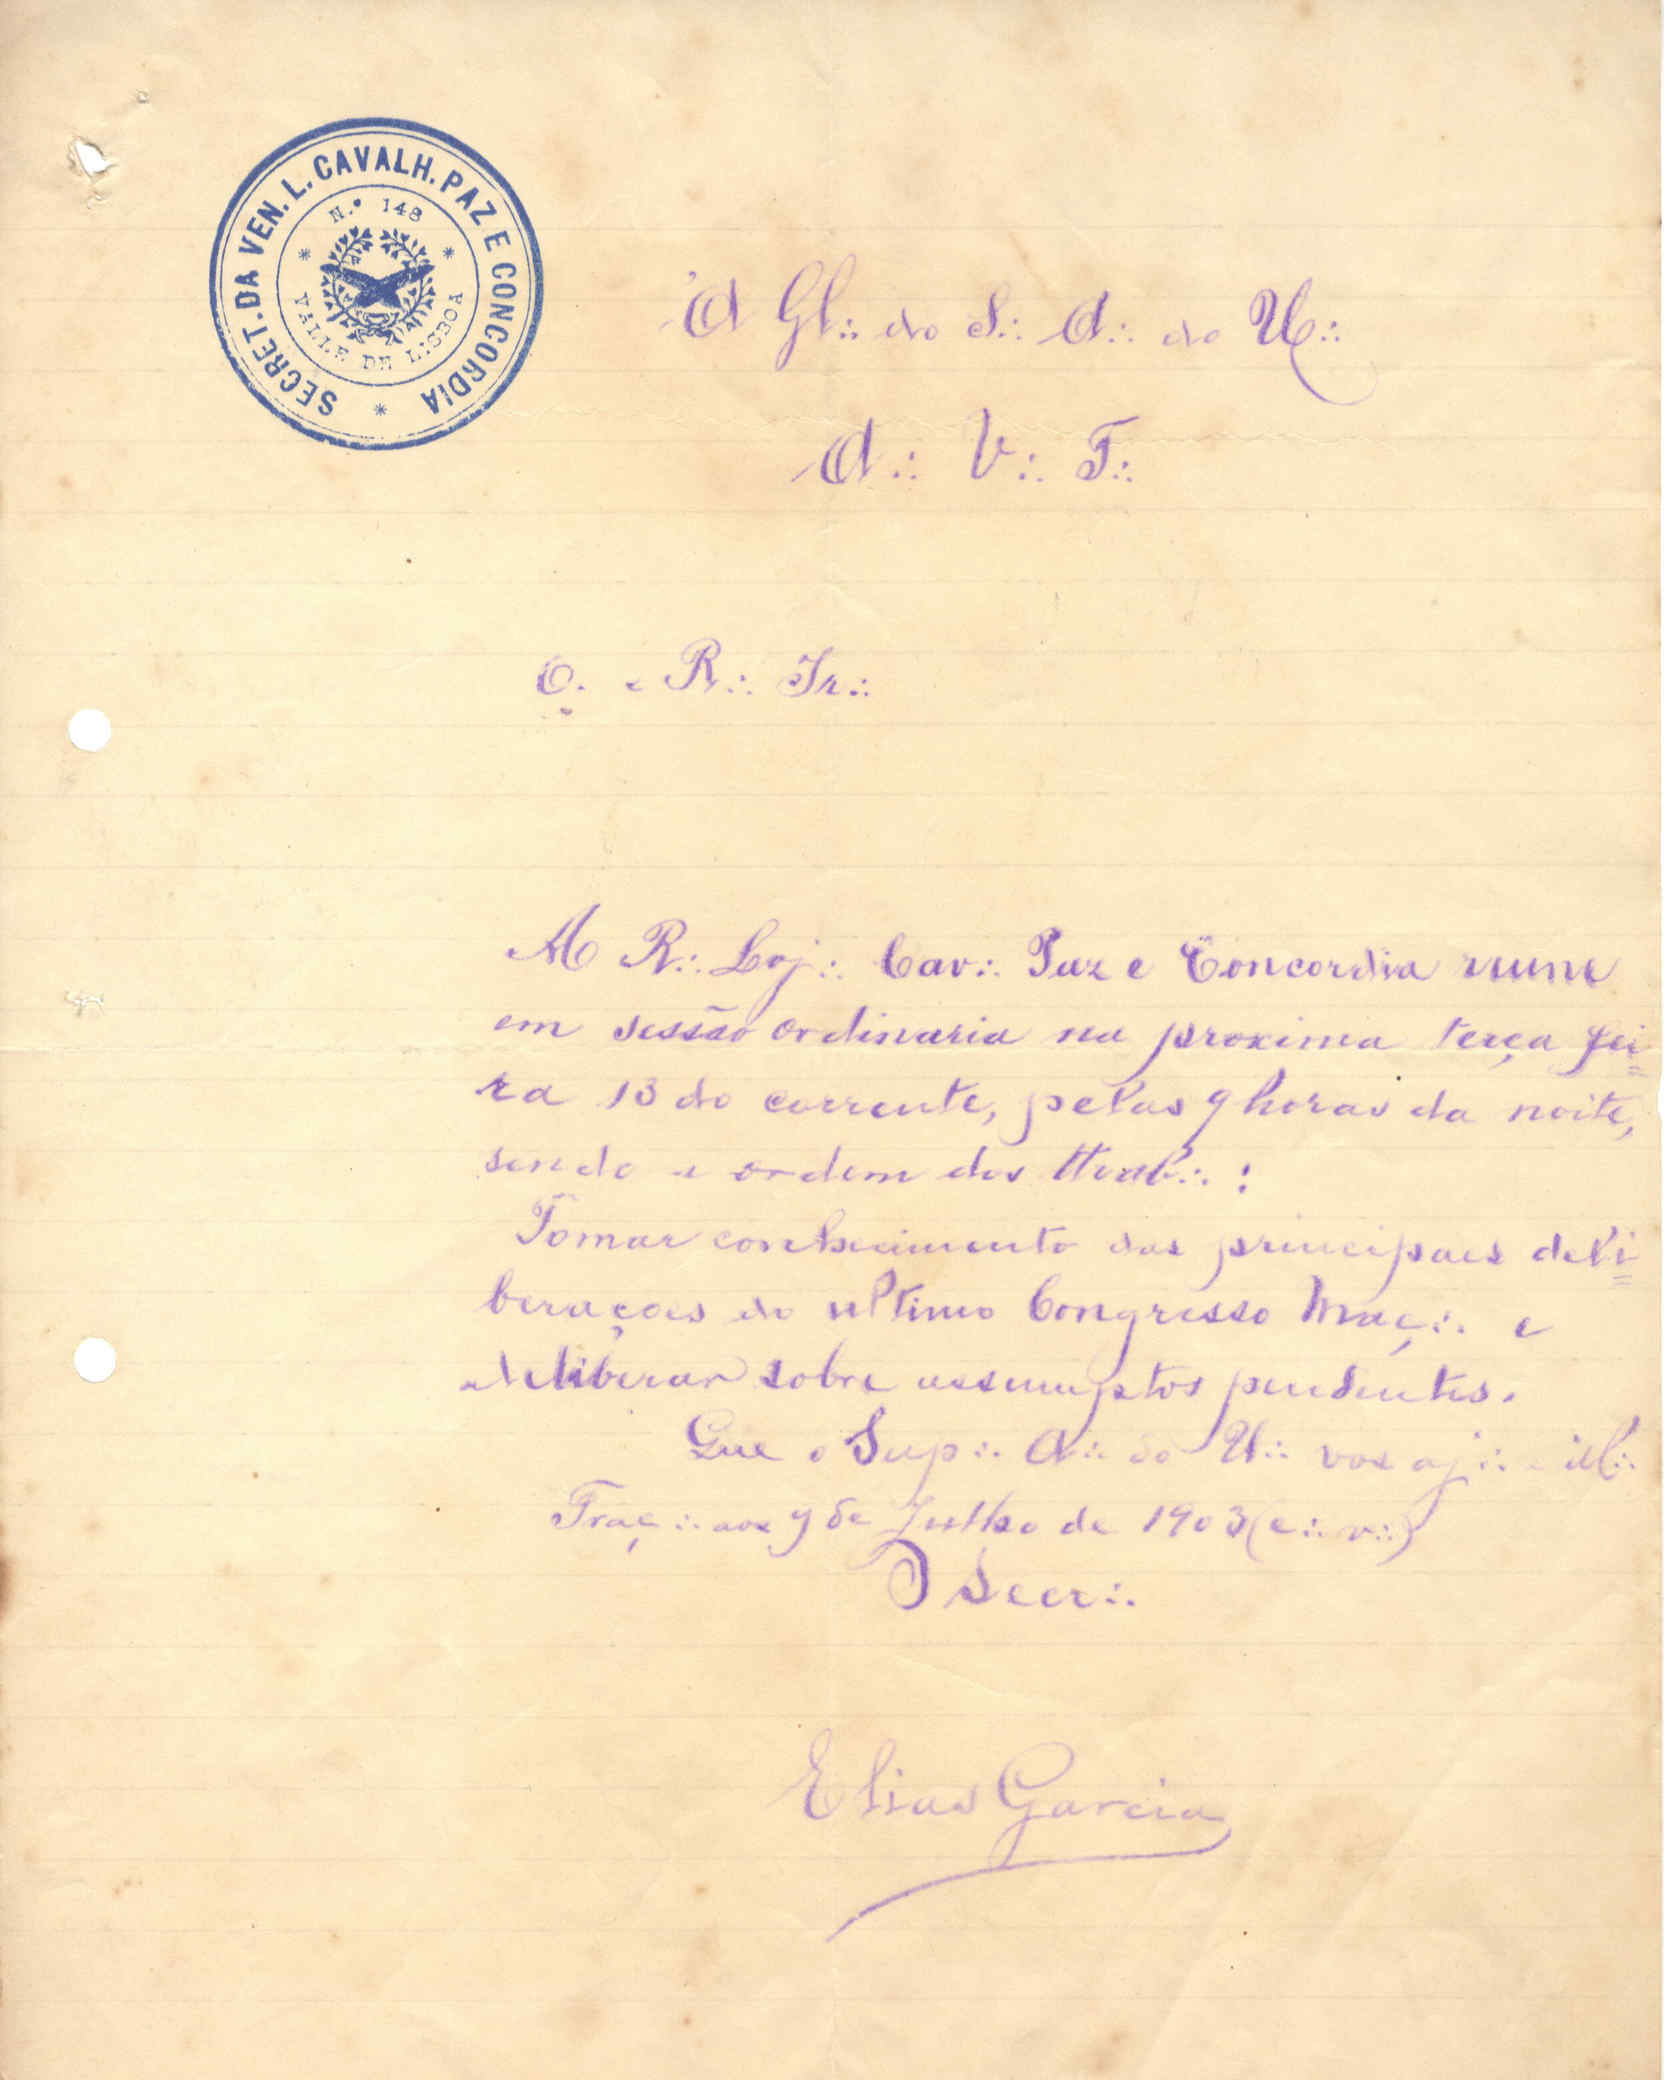 SECRET. DA VEN. L. CAVALH. PAZ E CONCORDIA
N.º 148
VALLE DE LISBOA
Á Gl∴ do S∴ A∴ do U∴
A∴ V∴ T∴
C. e R∴ Ir∴
A R∴ Loj∴ Cav∴ Paz e Concordia reune
em sessão ordinaria na proxima terça fei=
ra 13 do corrente, pelas 9 horas da noite,
sendo a ordem dos ttrab∴ :
Tomar conhecimento das principaes deli=
berações do ultimo Congresso Maç∴ e
deliberar sobre assumptos pendentes.
Que o Sup∴ A∴ do U∴ vos aj∴ e il∴
Traç∴ aos 9 de Julho de 1903 (e∴ v∴)
O Secr∴
Elias Garcia